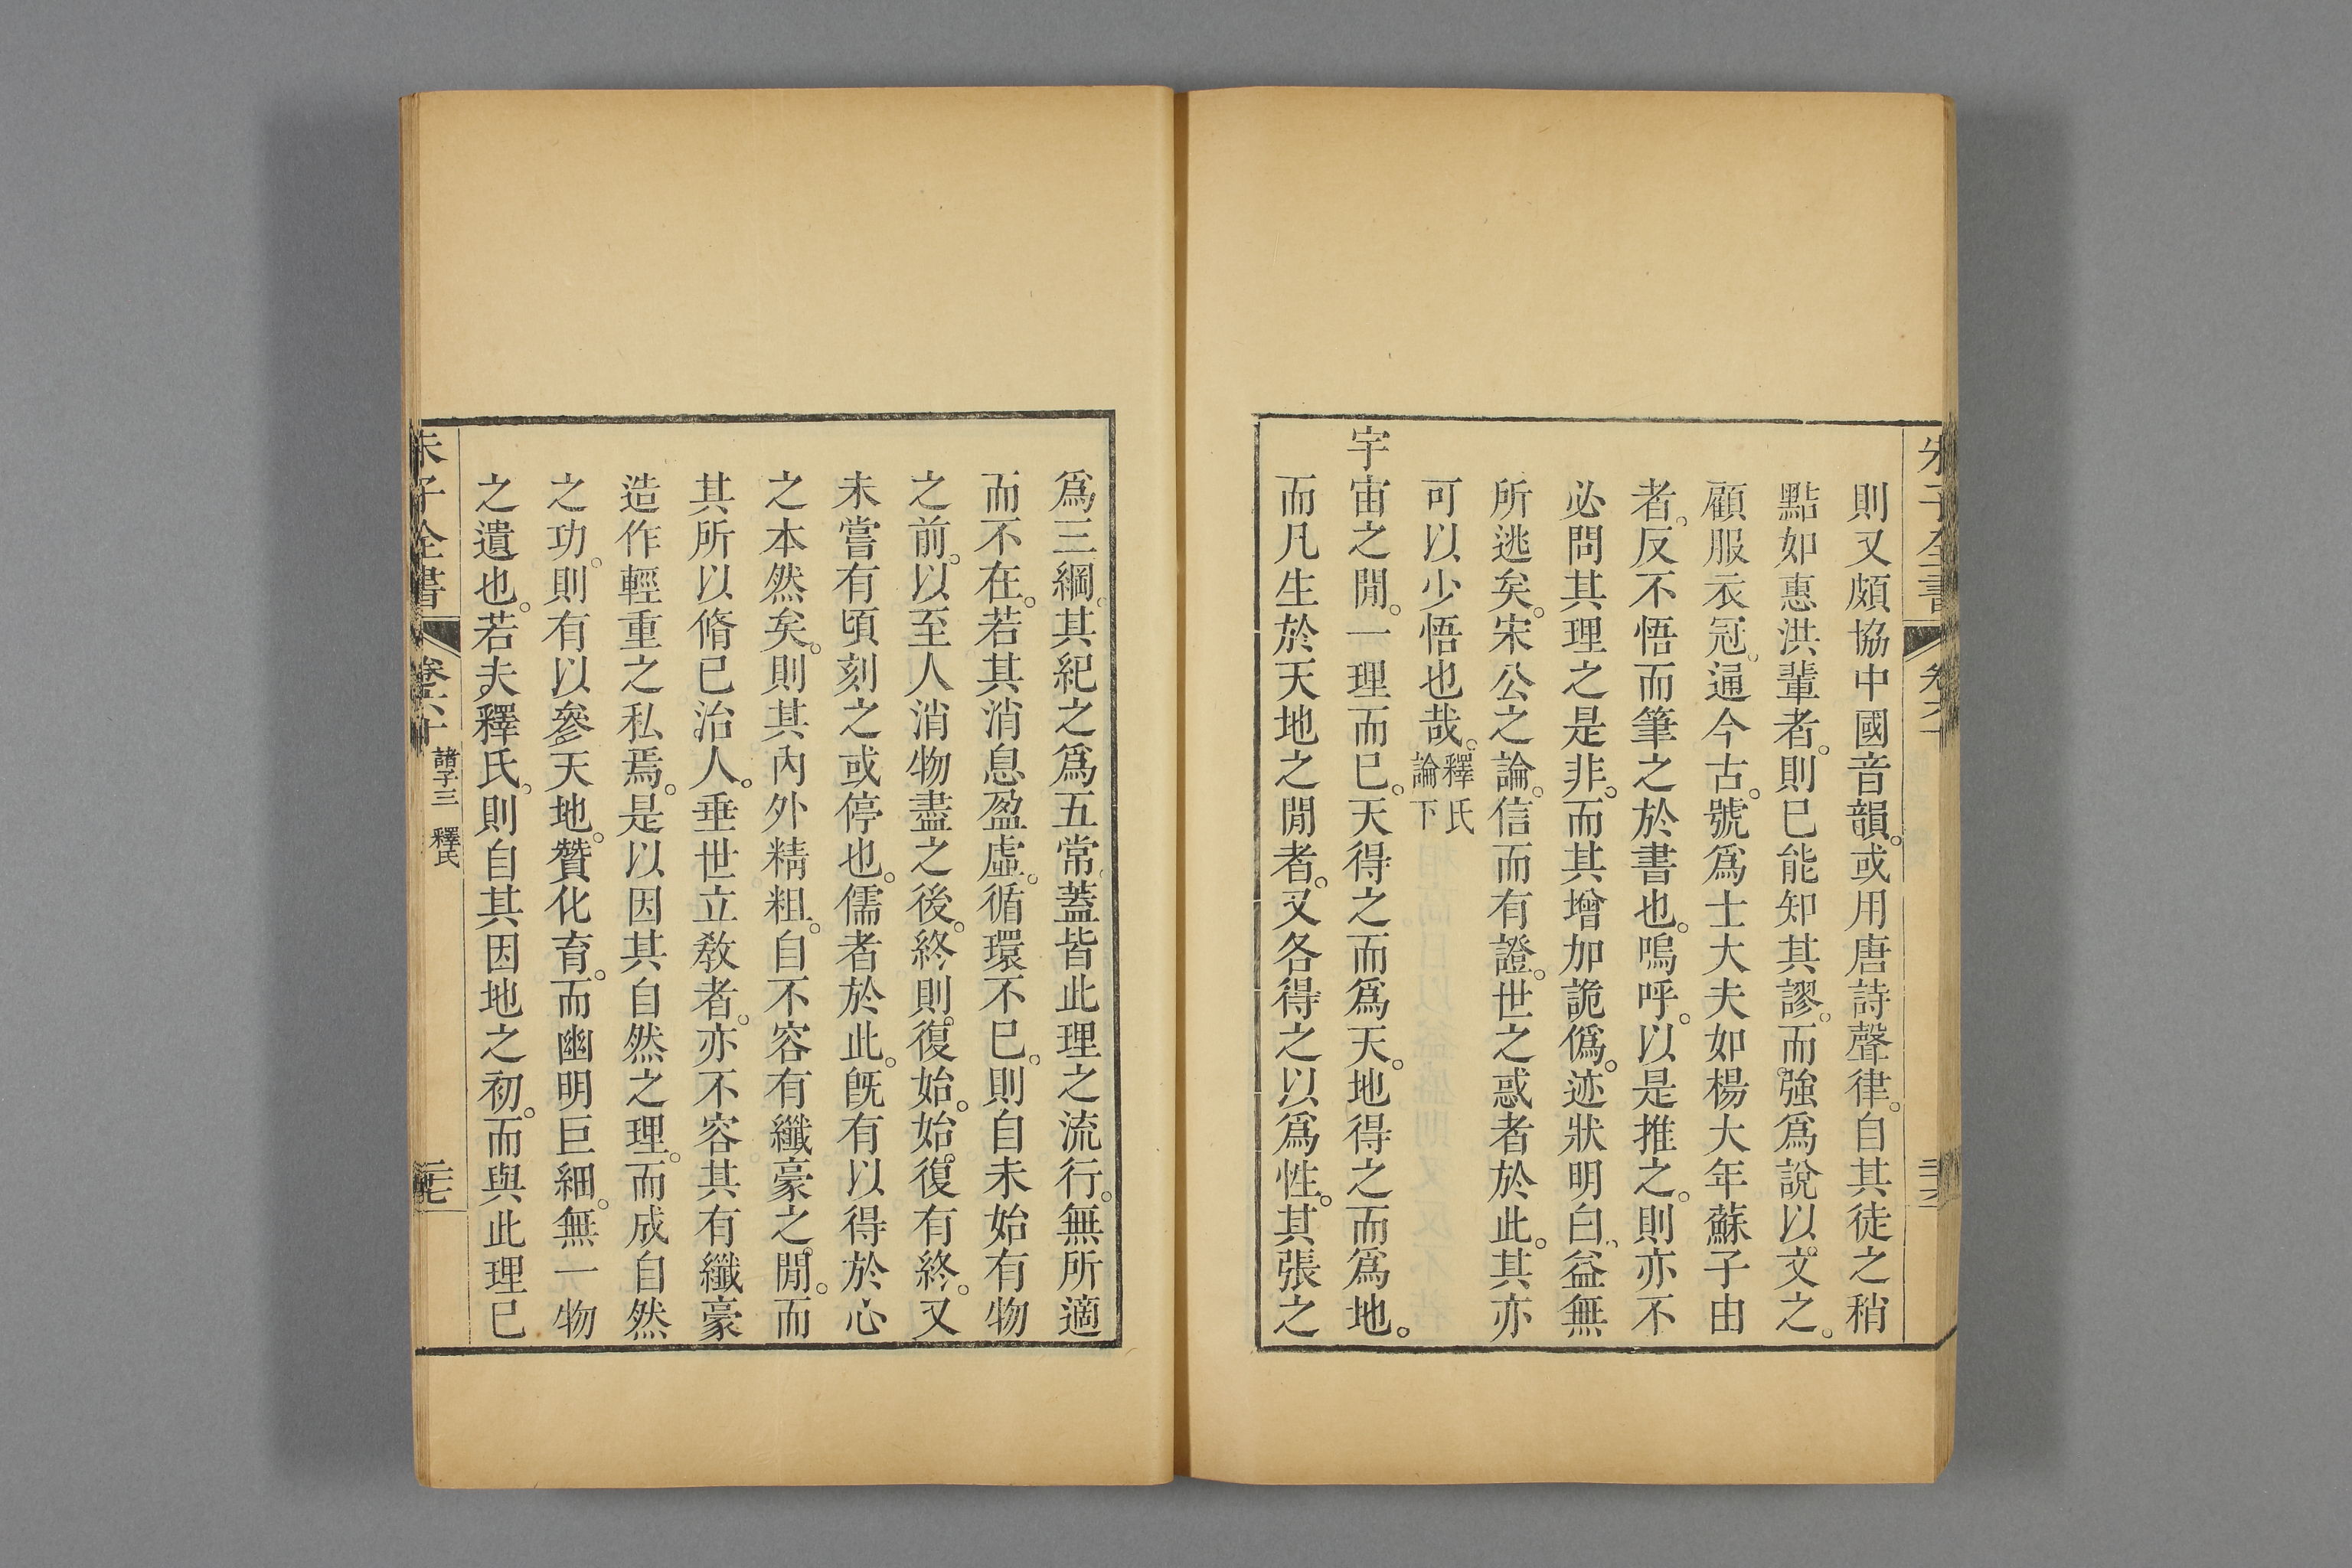 朱子全書 卷六十 二十六
則又頗協中國音韻。或用唐詩聲律。自其徒之稍
點如惠洪輩者。則已能知其謬。而強爲說以文之。
顧服衣冠。通今古。號爲士大夫如楊大年蘇子由
者。反不悟而筆之於書也。嗚呼。以是推之。則亦不
必問其理之是非。而其增加詭僞。迹狀明白。益無
所逃矣。宋公之論。信而有證。世之惑者於此。其亦
可以少悟也哉。釋氏論下
宇宙之閒。一理而已。天得之而爲天。地得之而爲地。
而凡生於天地之閒者。又各得之以爲性。其張之
爲三綱。其紀之爲五常。蓋皆此理之流行。無所適
而不在。若其消息盈虛。循環不已。則自未始有物
之前。以至人消物盡之後。終則復始。始復有終。又
未嘗有頃刻之或停也。儒者於此。旣有以得於心
之本然矣。則其內外精粗。自不容有纖豪之閒。而
其所以脩己治人。垂世立敎者。亦不容其有纖豪
造作輕重之私焉。是以因其自然之理。而成自然
之功。則有以參天地。贊化育。而幽明巨細。無一物
之遺也。若夫釋氏。則自其因地之初。而與此理已
朱子全書 卷六十 諸子三 釋氏 二十七